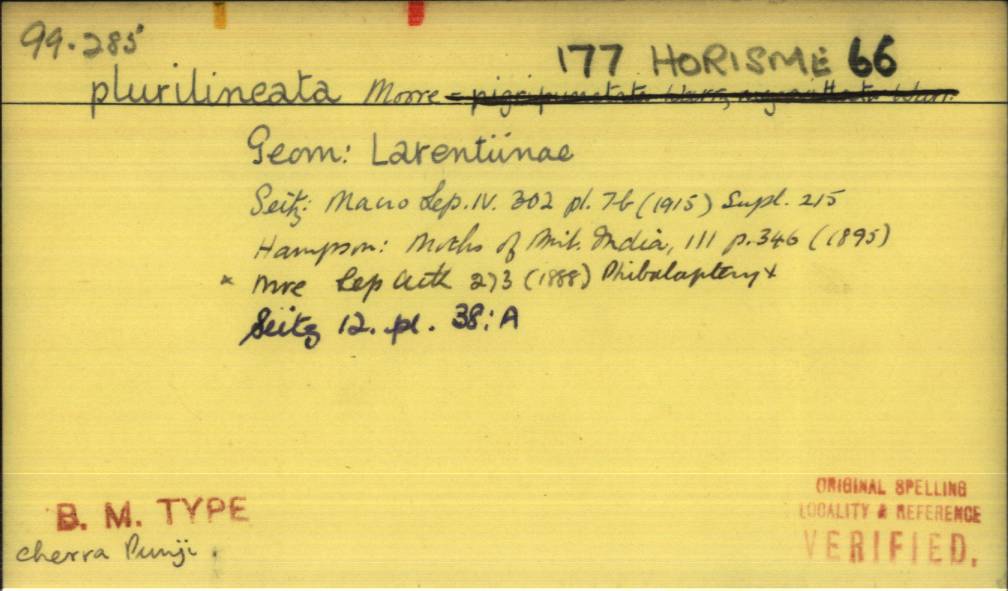 99.285
177 HORISME 66
plurilineata Moore = nigripunctata Warr,
Geom: Larentiinae
Seitz: Macro Lep. IV. 302 pl. 7b (1915) Supl. 215
Hampson: Moths of Brit. India, III p. 346 (1895)
× Mre Lep Atk 273 (1888) Phibalapteryx
Seitz 12. pl. 38: A
B. M. TYPE
cherra Punji.
ORIGINAL SPELLING
LOCALITY & REFERENCE
VERIFIED.